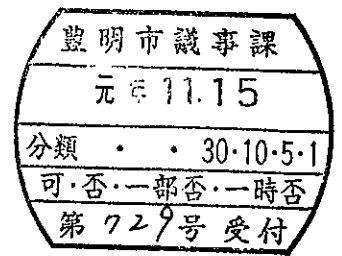 豊明市議事課
元年11.15
分類 ・ ・ 30・10・5・1
可・否・一部否・一時否
第729号 受付